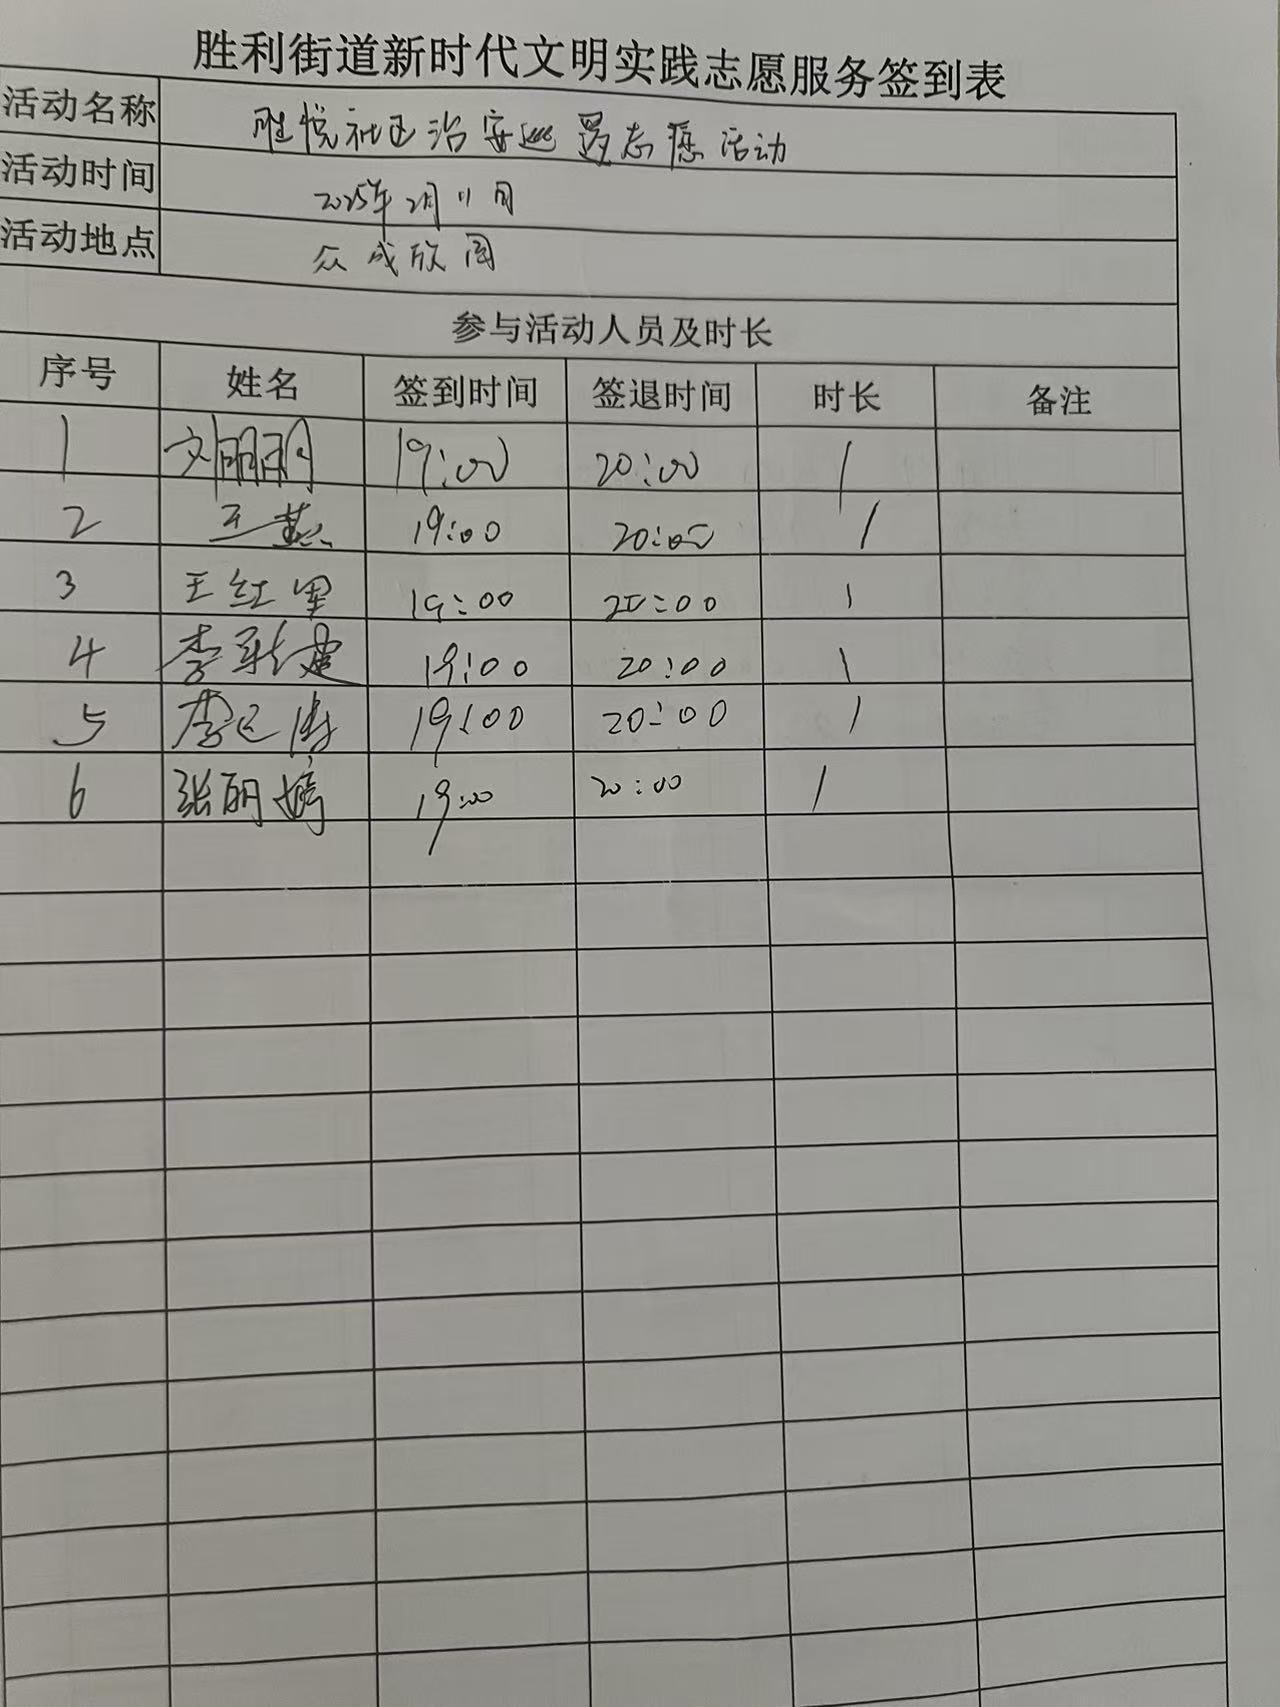 胜利街道新时代文明实践志愿服务签到表
活动名称 胜悦社区治安巡逻志愿活动
活动时间 2025年2月11日
活动地点 众成欣园
参与活动人员及时长
序号 姓名 签到时间 签退时间 时长 备注
1 刘丽丽 19:00 20:00 1
2 王燕 19:00 20:00 1
3 王红军 19:00 20:00 1
4 李新建 19:00 20:00 1
5 李 19:00 20:00 1
6 张丽婷 19:00 20:00 1